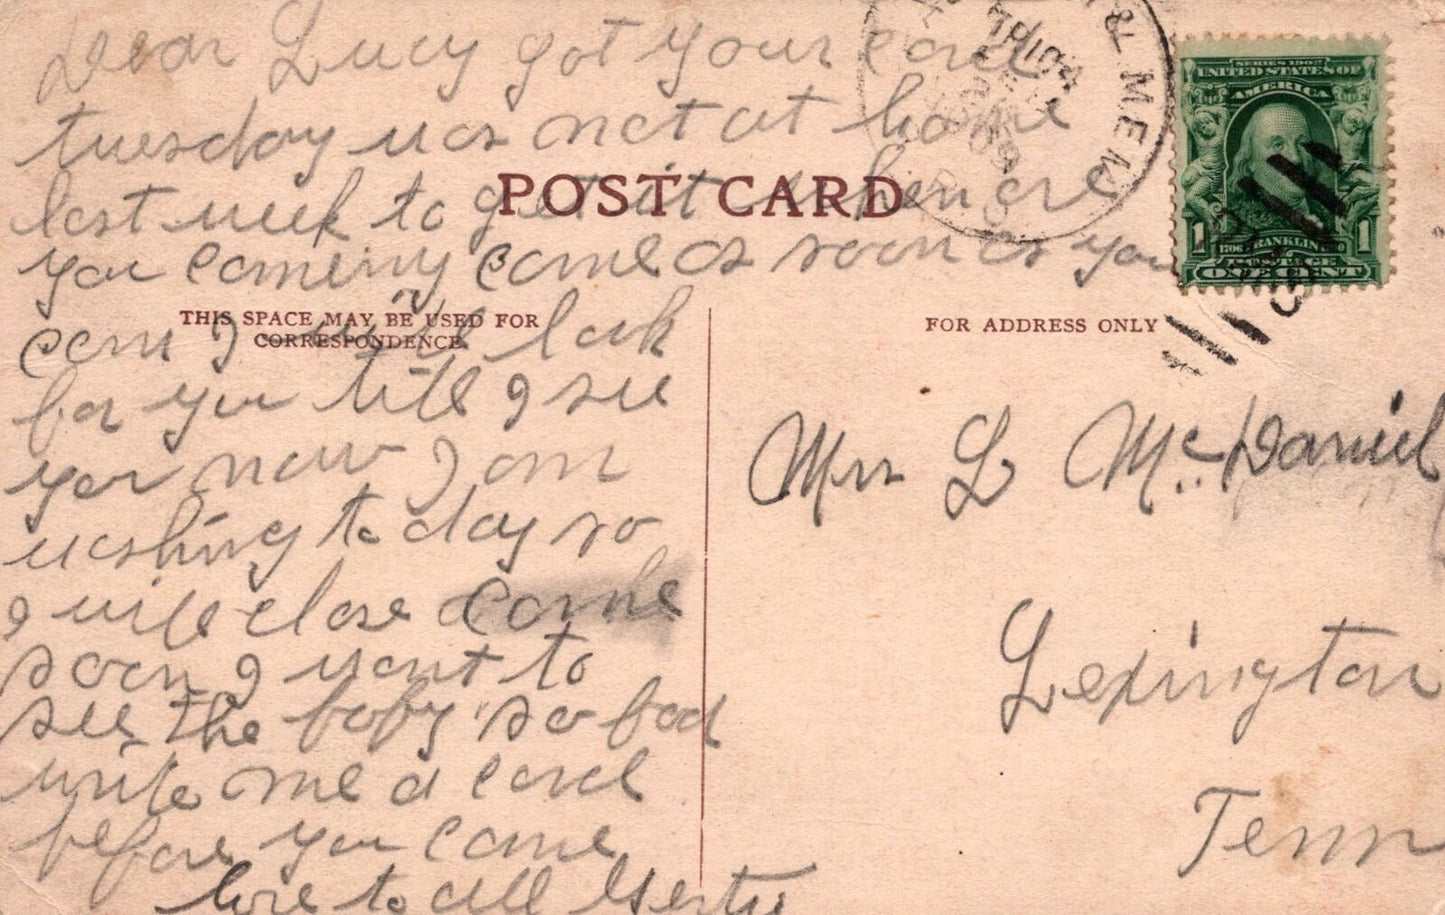 Dear Lucy got your card
tuesday was not at home
last week to get it when are
POST CARD
you coming come as soon as you
can I will look
THIS SPACE MAY BE USED FOR
CORRESPONDENCE.
for you till I see
you now I am
washing to day so
I will close come
soon I want to
see the baby so bad
write me a card
before you come
love to all Gertie
& MEM
TR 104
1909
SERIES 1902
UNITED STATES OF
AMERICA
1 1706 FRANKLIN 1790 1
POSTAGE
ONE CENT
FOR ADDRESS ONLY
Mrs L McDaniel
Lexington
Tenn